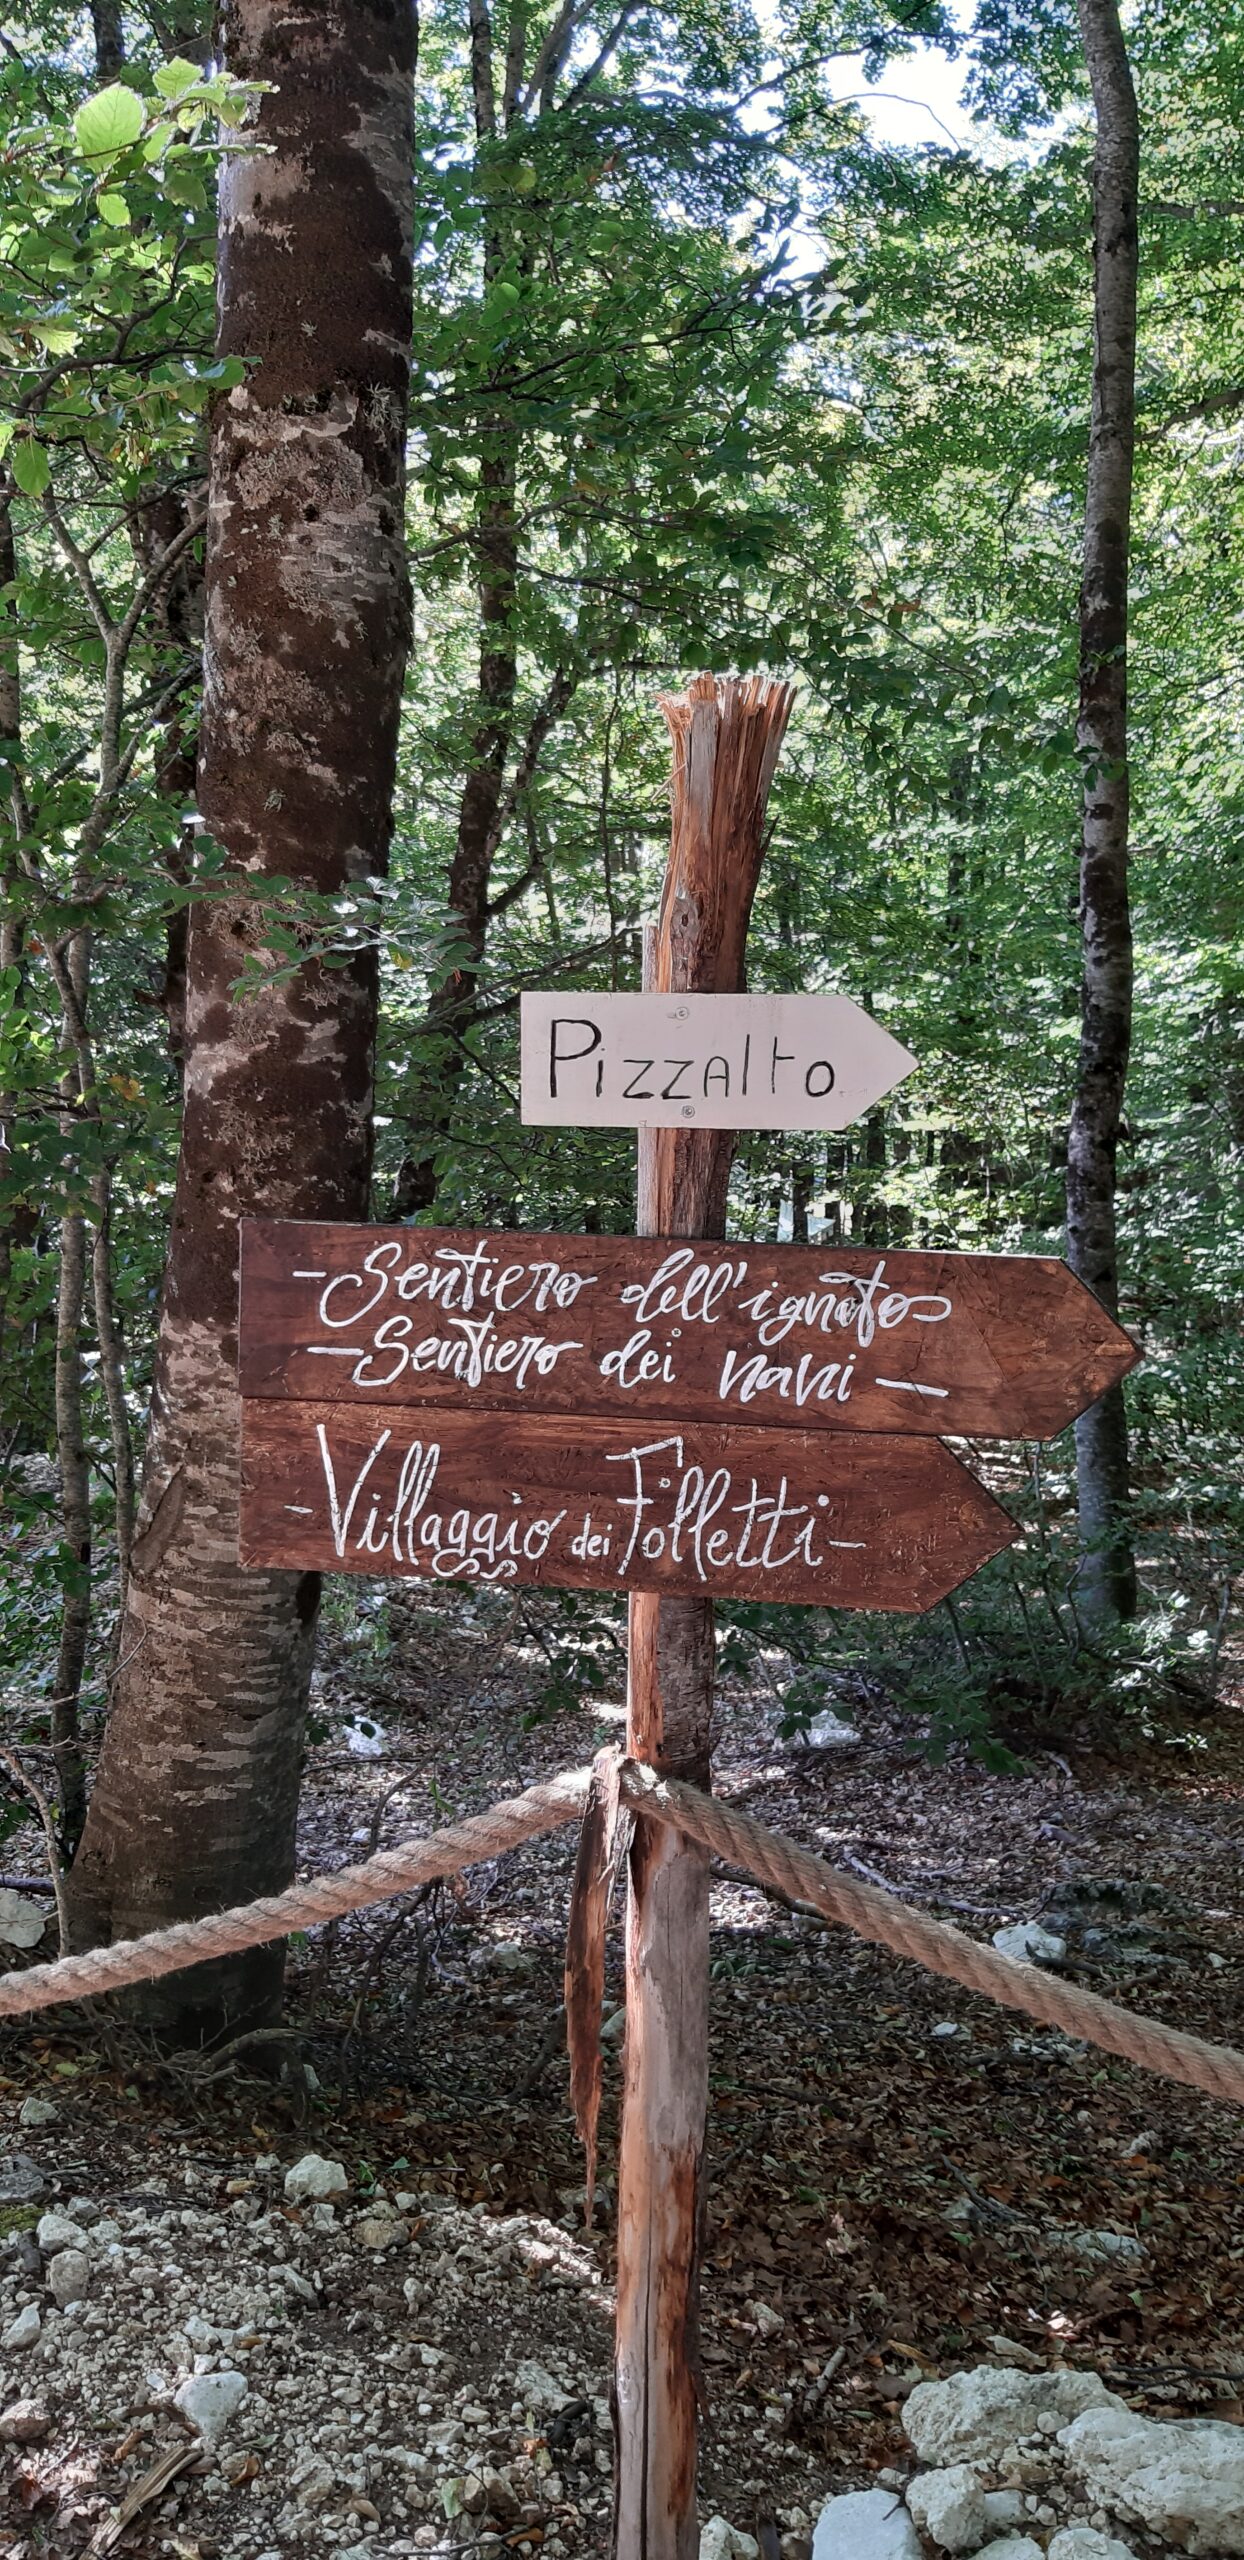 Pizzalto
-Sentiero dell'ignoto
-Sentiero dei nani-
-Villaggio dei Folletti-